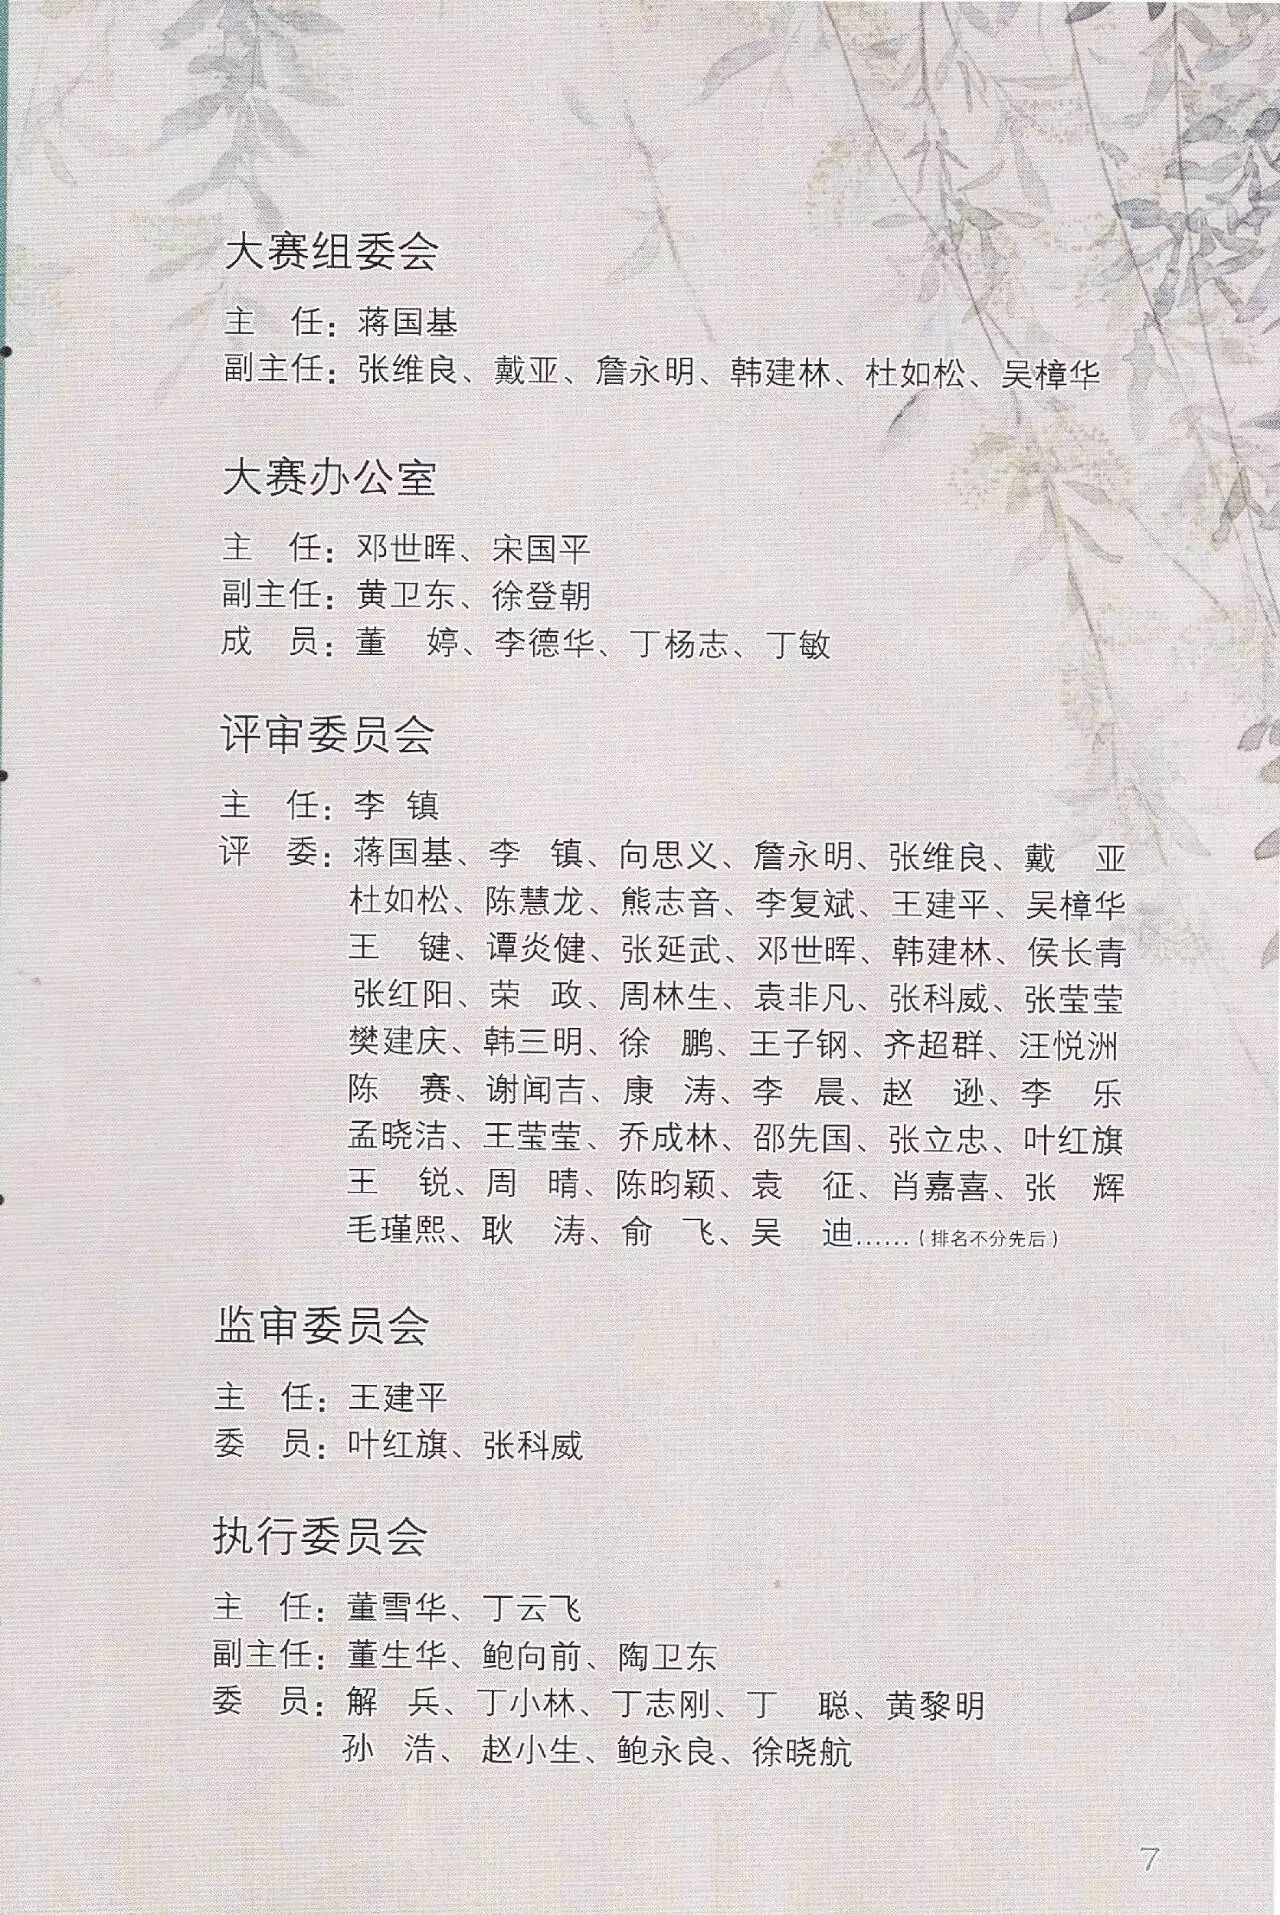 大赛组委会
主　任：蒋国基
副主任：张维良、戴亚、詹永明、韩建林、杜如松、吴樟华
大赛办公室
主　任：邓世晖、宋国平
副主任：黄卫东、徐登朝
成　员：董　婷、李德华、丁杨志、丁敏
评审委员会
主　任：李 镇
评　委：蒋国基、李　镇、向思义、詹永明、张维良、戴　亚
杜如松、陈慧龙、熊志音、李复斌、王建平、吴樟华
王　键、谭炎健、张延武、邓世晖、韩建林、侯长青
张红阳、荣　政、周林生、袁非凡、张科威、张莹莹
樊建庆、韩三明、徐　鹏、王子钢、齐超群、汪悦洲
陈　赛、谢闻吉、康　涛、李　晨、赵　逊、李　乐
孟晓洁、王莹莹、乔成林、邵先国、张立忠、叶红旗
王　锐、周　晴、陈昀颖、袁　征、肖嘉喜、张　辉
毛瑾熙、耿　涛、俞　飞、吴　迪……（排名不分先后）
监审委员会
主　任：王建平
委　员：叶红旗、张科威
执行委员会
主　任：董雪华、丁云飞
副主任：董生华、鲍向前、陶卫东
委　员：解　兵、丁小林、丁志刚、丁　聪、黄黎明
孙　浩、赵小生、鲍永良、徐晓航
7